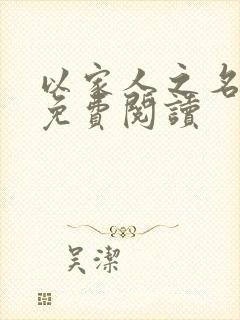 以家人之名
免費閱讀
吴潔